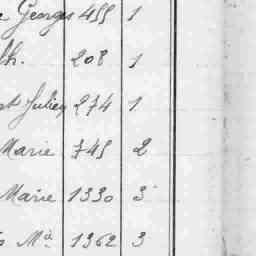 Georges 455 1
208 1
st Julien 274 1
Marie 745 2
Marie 1330 3
Ma 1362 3